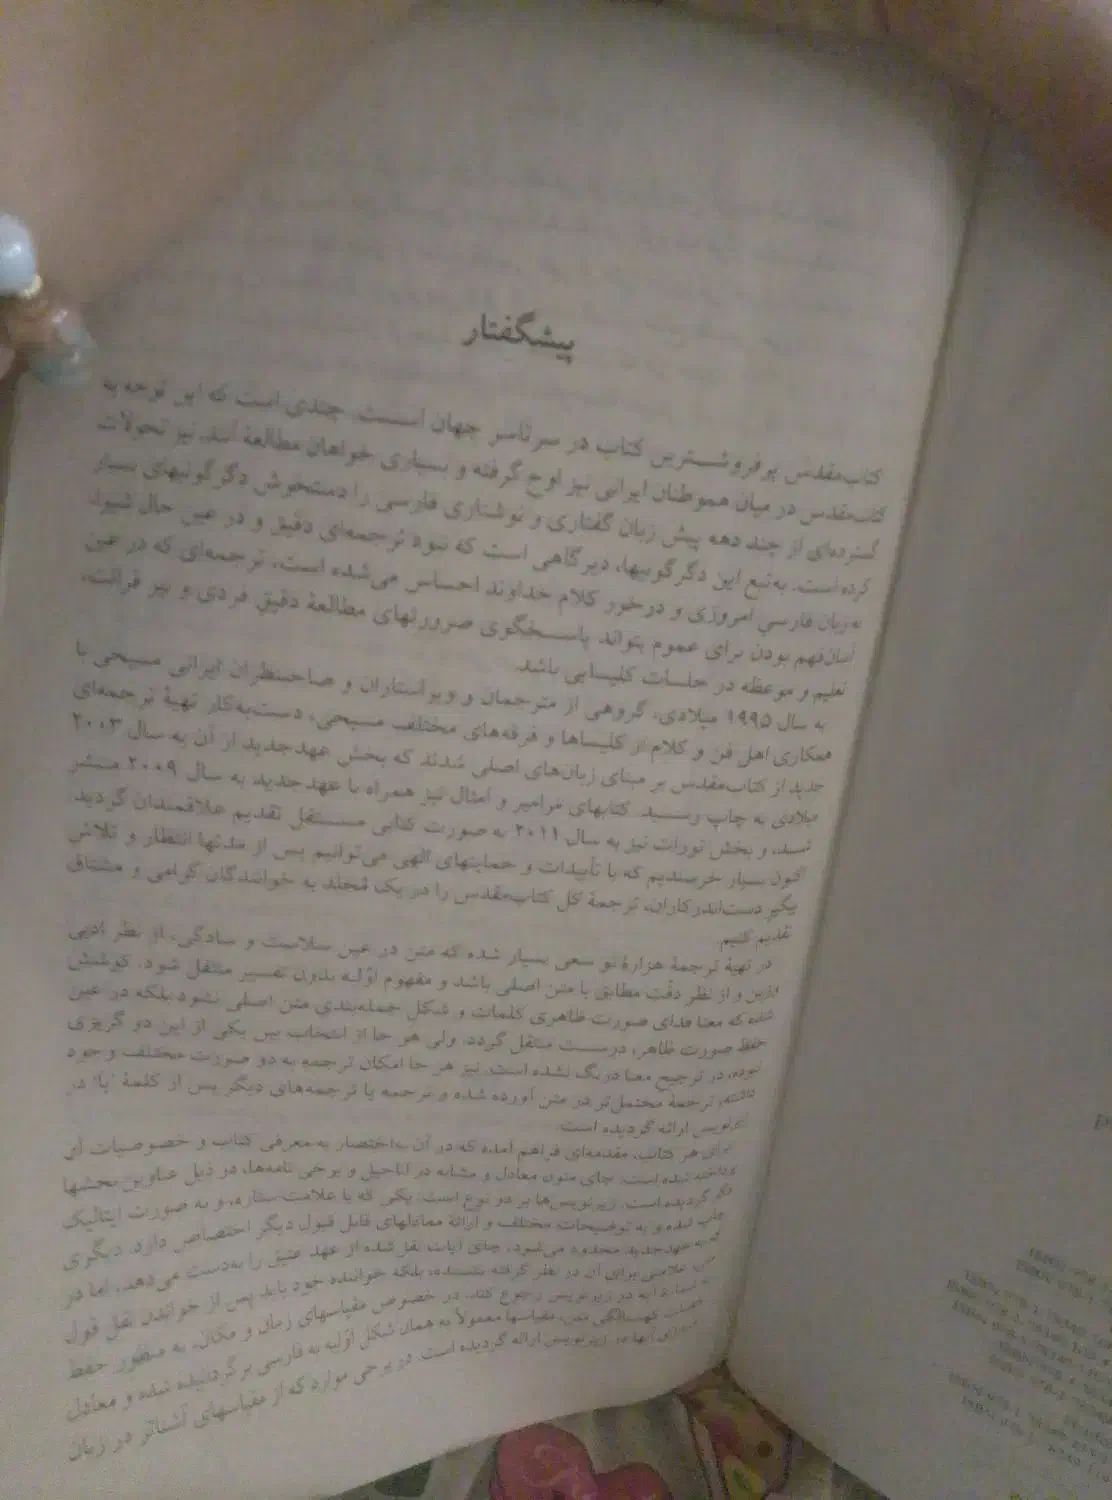 پیشگفتار
کتاب‌مقدس پرفروشترین کتاب در سرتاسر جهان است. چندی است که این توجه به
کتاب‌مقدس در میان هموطنان ایرانی نیز اوج گرفته و بسیاری خواهان مطالعهٔ آنند. نیز تحولات
گسترده‌ای از چند دهه پیش زبان گفتاری و نوشتاری فارسی را دستخوش دگرگونیهای بسیار
کرده است. به‌تبع این دگرگونیها، دیرگاهی است که نبود ترجمه‌ای دقیق و در عین حال شیوا
به زبان فارسی امروزی و درخور کلام خداوند احساس می‌شده است، ترجمه‌ای که در عین
آسان‌فهم بودن برای عموم بتواند پاسخگوی ضرورتهای مطالعهٔ دقیق فردی و نیز قرائت،
تعلیم و موعظه در جلسات کلیسایی باشد.
به سال ۱۹۹۵ میلادی، گروهی از مترجمان و ویراستاران و صاحبنظران ایرانی مسیحی با
همکاری اهل فن و کلام از کلیساها و فرقه‌های مختلف مسیحی، دست‌به‌کار تهیهٔ ترجمه‌ای
جدید از کتاب‌مقدس بر مبنای زبان‌های اصلی شدند که بخش عهدجدید از آن به سال ۲۰۰۳
میلادی به چاپ رسید. کتابهای مزامیر و امثال نیز همراه با عهدجدید به سال ۲۰۰۹ منتشر
شد، و بخش تورات نیز به سال ۲۰۱۱ به صورت کتابی مستقل تقدیم علاقمندان گردید.
اکنون بسیار خرسندیم که با تأییدات و حمایتهای الهی می‌توانیم پس از مدتها انتظار و تلاش
پیگیر دست‌اندرکاران، ترجمهٔ کل کتاب‌مقدس را در یک مُجلد به خوانندگان گرامی و مشتاق
تقدیم کنیم.
در تهیهٔ ترجمهٔ هزارهٔ نو سعی بسیار شده که متن در عین سلاست و سادگی، از نظر ادبی
وزین و از نظر دقّت مطابق با متن اصلی باشد و مفهوم اوّلیه بدون تفسیر منتقل شود. کوشش
شده که معنا فدای صورت ظاهری کلمات و شکل جمله‌بندی متن اصلی نشود بلکه در عین
حفظ صورت ظاهر، درست منتقل گردد. ولی هر جا از انتخاب بین یکی از این دو گریزی
نبوده، در ترجیح معنا درنگ نشده است. نیز هر جا امکان ترجمه به دو صورت مختلف وجود
داشته، ترجمهٔ محتمل‌تر در متن آورده شده و ترجمه یا ترجمه‌های دیگر پس از کلمهٔ 'یا' در
زیرنویس ارائه گردیده است.
برای هر کتاب، مقدمه‌ای فراهم آمده که در آن به‌اختصار به معرفی کتاب و خصوصیات آن
پرداخته شده است. جای متون معادل و مشابه در اناجیل و برخی نامه‌ها، در ذیل عناوین بخشها
ذکر گردیده است. زیرنویس‌ها بر دو نوع است: یکی که با علامت ستاره، و به صورت ایتالیک
چاپ شده و به توضیحات مختلف و ارائهٔ معادلهای قابل قبول دیگر اختصاص دارد. دیگری
که به عهدجدید محدود می‌شود، جای آیات نقل‌شده از عهد عتیق را به‌دست می‌دهد، اما در
متن علامتی برای آن در نظر گرفته نشده، بلکه خواننده خود باید پس از خواندن نقل قول
به شمارهٔ آیه در زیرنویس رجوع کند. در خصوص مقیاسهای زمان و مکان، به منظور حفظ
کهنسالگی متن، مقیاسها معمولاً به همان شکل اوّلیه به فارسی برگردانیده شده و معادل
امروزی آنها در زیرنویس ارائه گردیده است. در برخی موارد که از مقیاسهای آشناتر در زبان